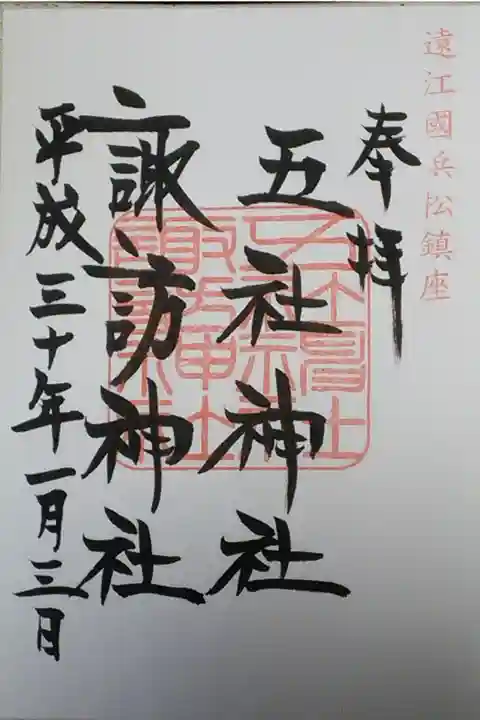 遠江國兵松鎮座
奉拝
五社神社
諏訪神社
平成三十年一月三日